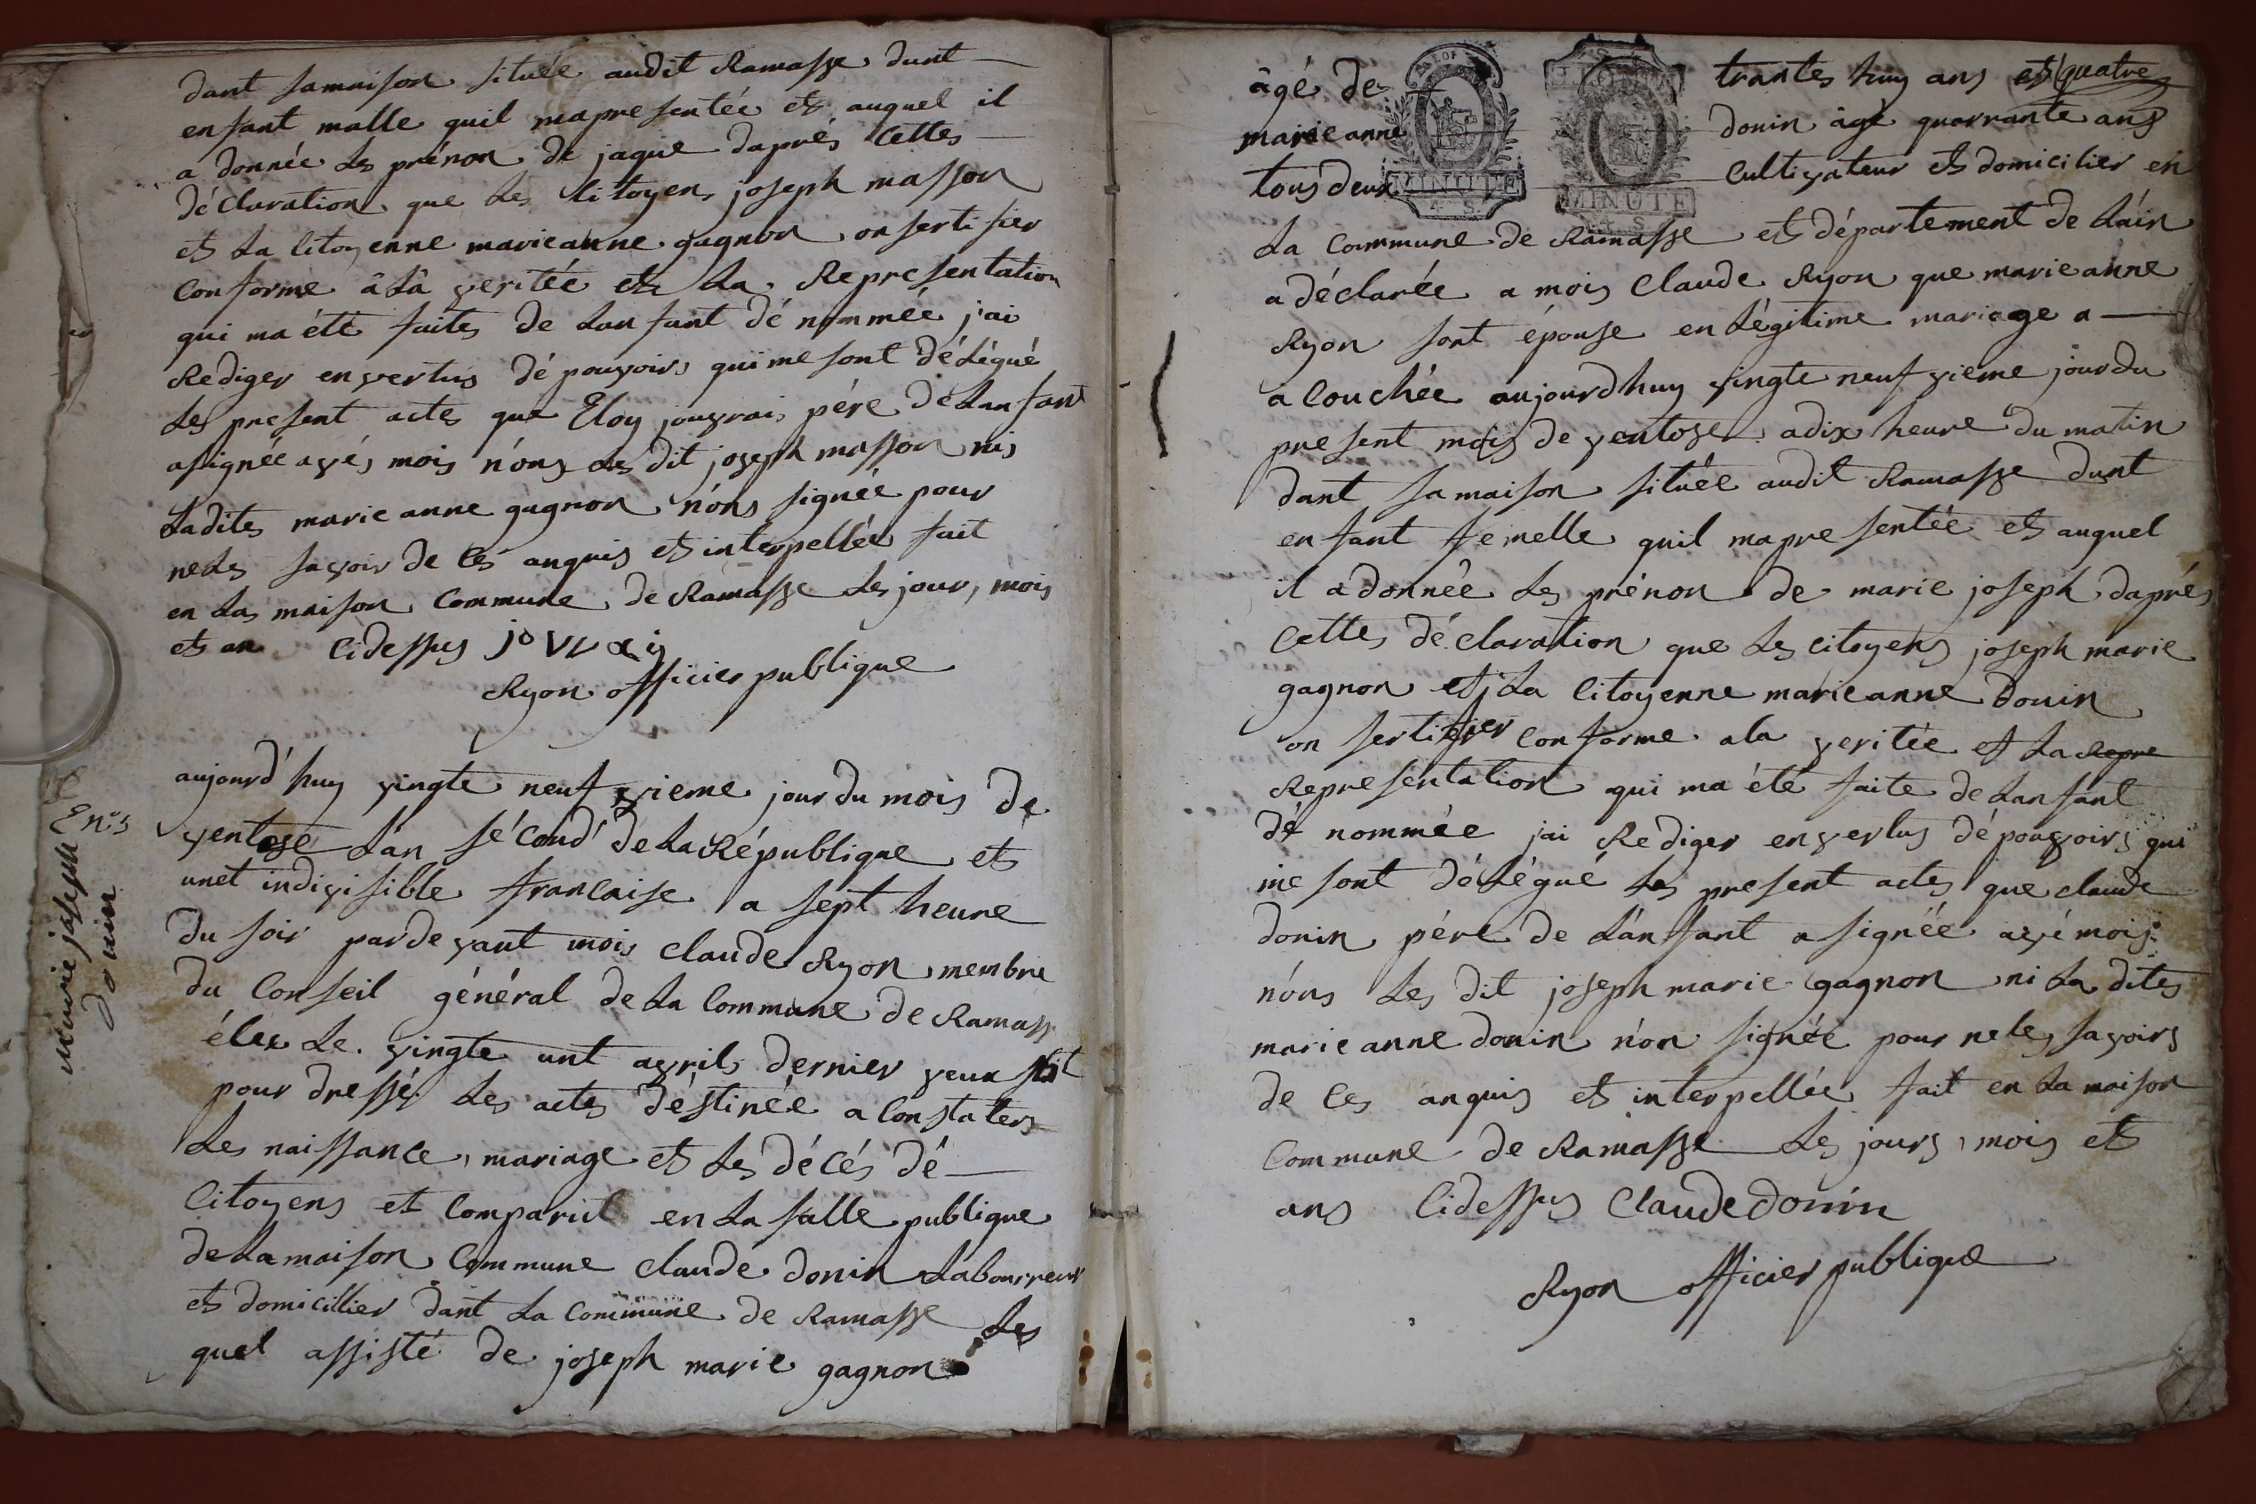 dant samaison située audit Ramasse dunt
enfant malle quil mapresentée et auquel il
a donnée les prénon de jaque daprés cettes
déclaration que les citoyens joseph masson
et la citoyenne marieanne gagnon on sertifier
conforme â lâ veritée et la Representation
qui ma été faites de lanfant dé nommée j'ai
Rediger envertus dé pouvoirs qui me sont délégué
les present actes que Eloy jouvrai pére de lanfant
asignée avés mois n'ons les dit joseph masson nis
ladites marie anne gagnon n'ons signée pour
neles savoir de cés anquis et interpellée fait
en las maison commune de Ramasse les jour, mois
et an cidessus jovrai
Ryon officier publique
E n° 5
marie joseph
donin
aujourd'huy vingte neuf vieme jour du mois de
ventose l'an sécond de la République et
unet indivisible francaise a sept heure
du soir pardevant mois claude Ryon membre
du conseil général de la commune de Ramass
élex le vingte unt avril dernier yeux
pour dressé les actes déstinée a constaters
les naissance, mariage et les décés dé
citoyens et comparut en la salle publique
de la maison commune claude donin labourreur
et domicillier dant la commune de Ramasse les
quel assisté de joseph marie gagnon
âgé de trantes huy ans et quatre
marie anne donin âgé quarrante ans
tous deux cultivateur et domicilier en
MINUTE
4 S
MINUTE
4 S
la commune de Ramasse et département de láin
a déclarée a mois claude Ryon que marieanne
Ryon sont épouse en légitime mariage a
a couchée aujourdhuy vingte neuf vieme jour du
present mois de ventose adix heure du matin
dant samaison située audit Ramasse dunt
enfant femelle quil mapresentée et auquel
il a donnée les prénon de marie joseph daprés
cettes déclaration que les citoyens joseph marie
gagnon et la citoyenne marieanne donin
on sertifier conforme ala veritée et la Repre
Representation qui ma été faite de lanfant
dé nommée jai Rediger envertus dé pouvoirs qui
me sont délégué les present actes que claude
donin pére de lánfant asignée avé mois
nóns les dit joseph marie gagnon ni la dites
marie anne donin nón signée pour neles savoirs
de ces anquis et interpellée fait en la maison
commune de Ramasse les jours, mois et
ans cidessus claude donin
Ryon officier publique